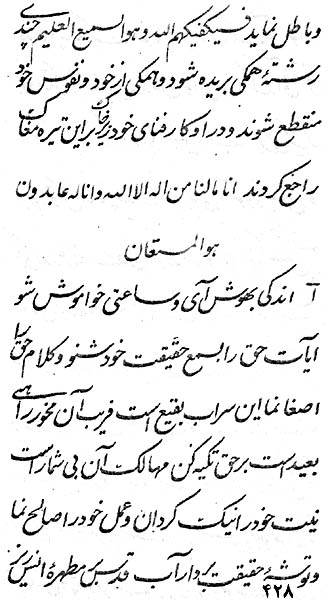 و باطل نماید فسیکفیکهم الله و هو السمیع العلیم چندی
رشتهٔ همگی بریده شود و همگی از خود و نفوس خود
منقطع شوند و در اوکار فنای خود زیر خاک بر این تیره مغاک
راجع گردند انا مالنا من اله الا الله و انا له عابدون
هو المستعان
آ اندکی بهوش آی و ساعتی خاموش شو
آیات حق را بسمع حقیقت خود شنو و کلام حق را
اصغا نما این سراب بقیع است فریب آن مخور راهی
بعید است بر حق تکیه کن مهالک آن بی شمار است
نیت خود را نیک گردان و عمل خود را صالح نما
و توشهٔ حقیقت بردار آب قدس بر مطهرهٔ انیس
۴۲۸